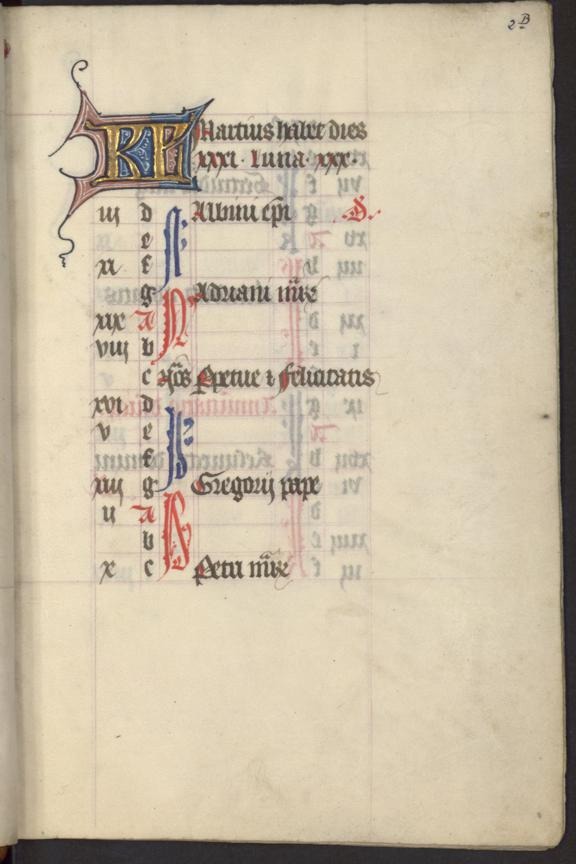 2 B
KL Martius habet dies
xxxi. Luna. xxx.
iii d Albini epi D.
e
xi f
g Adriani mre
xix A N
viii b
c N͞os Perpetue ⁊ felicitatis
xvi d
v e
f
xiii g Gregorij pape
ii A
b
x c Petri mre